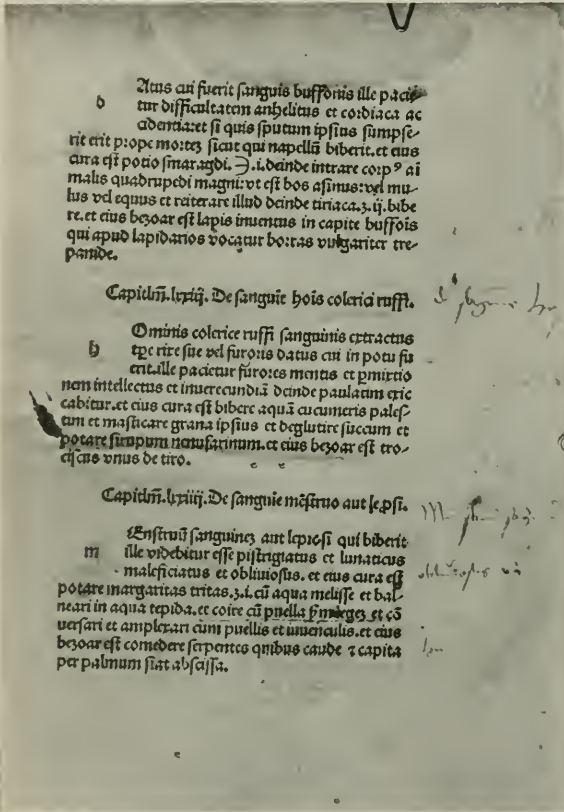 Atus cui fuerit sanguis buffonis ille pacie
b tur difficultatem anhelitus et cordiaca ac
cidentia:et si quis sputum ipsius sumpse-
rit erit prope mortez sicut qui napellū biberit.et eius
cura est potio smaragdi. Ə.i.deinde intrare corpꝰ ai
malis quadrupedi magni:vt est bos asinus:vel mu-
lus vel equus et reiterare illud deinde tiriaca.ʒ.ij.bibe
re.et eius bezoar est lapis inuentus in capite buffois
qui apud lapidarios vocatur borras vulgariter tre-
panide.
Capitlm̄.lxxiij. De sanguie hois colerici ruffi.
Ominis colerice ruffi sanguinis extractus
h tp̄e rixe sue vel furoris datus cui in potu fu
erit.ille pacietur furores mentis et ꝑmixtio
nem intellectus et inuerecundiā deinde paulatim exic
cabitur.et eius cura est bibere aquā cucumeris pales-
tini et masticare grana ipsius et deglutire succum et
potare sirupum nenufarinum.et eius bezoar est tro-
ciscus vnus de tiro.
Capitlm̄.lxxiiij. De sanguie mēstruo aut leprosi.
Enstruū sanguinez aut leprosi qui biberit
m ille videbitur esse pistrigiatus et lunaticus
maleficiatus et obliuiosus. et eius cura est
potare margaritas tritas.ʒ.i.cū aqua melisse et bal-
neari in aqua tepida.et coire cū puella et cō
uersari et amplexari cum puellis et iuuenculis.et eius
bezoar est comedere serpentes quibus caude ⁊ capita
per palmum fiat abscissa.